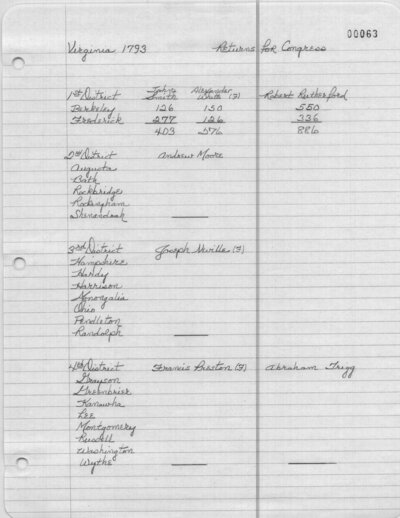 00063
Virginia 1793 Returns for Congress
1st District John Smith Alexander White (F) Robert Rutherford
Berkeley 126 150 550
Frederick 277 126 336
403 276 886
2nd District Andrew Moore
Augusta
Bath
Rockbridge
Rockingham
Shenandoah
3rd District Joseph Neville (F)
Hampshire
Hardy
Harrison
Monongalia
Ohio
Pendleton
Randolph
4th District Francis Preston (F) Abraham Trigg
Grayson
Greenbrier
Kanawha
Lee
Montgomery
Russell
Washington
Wythe